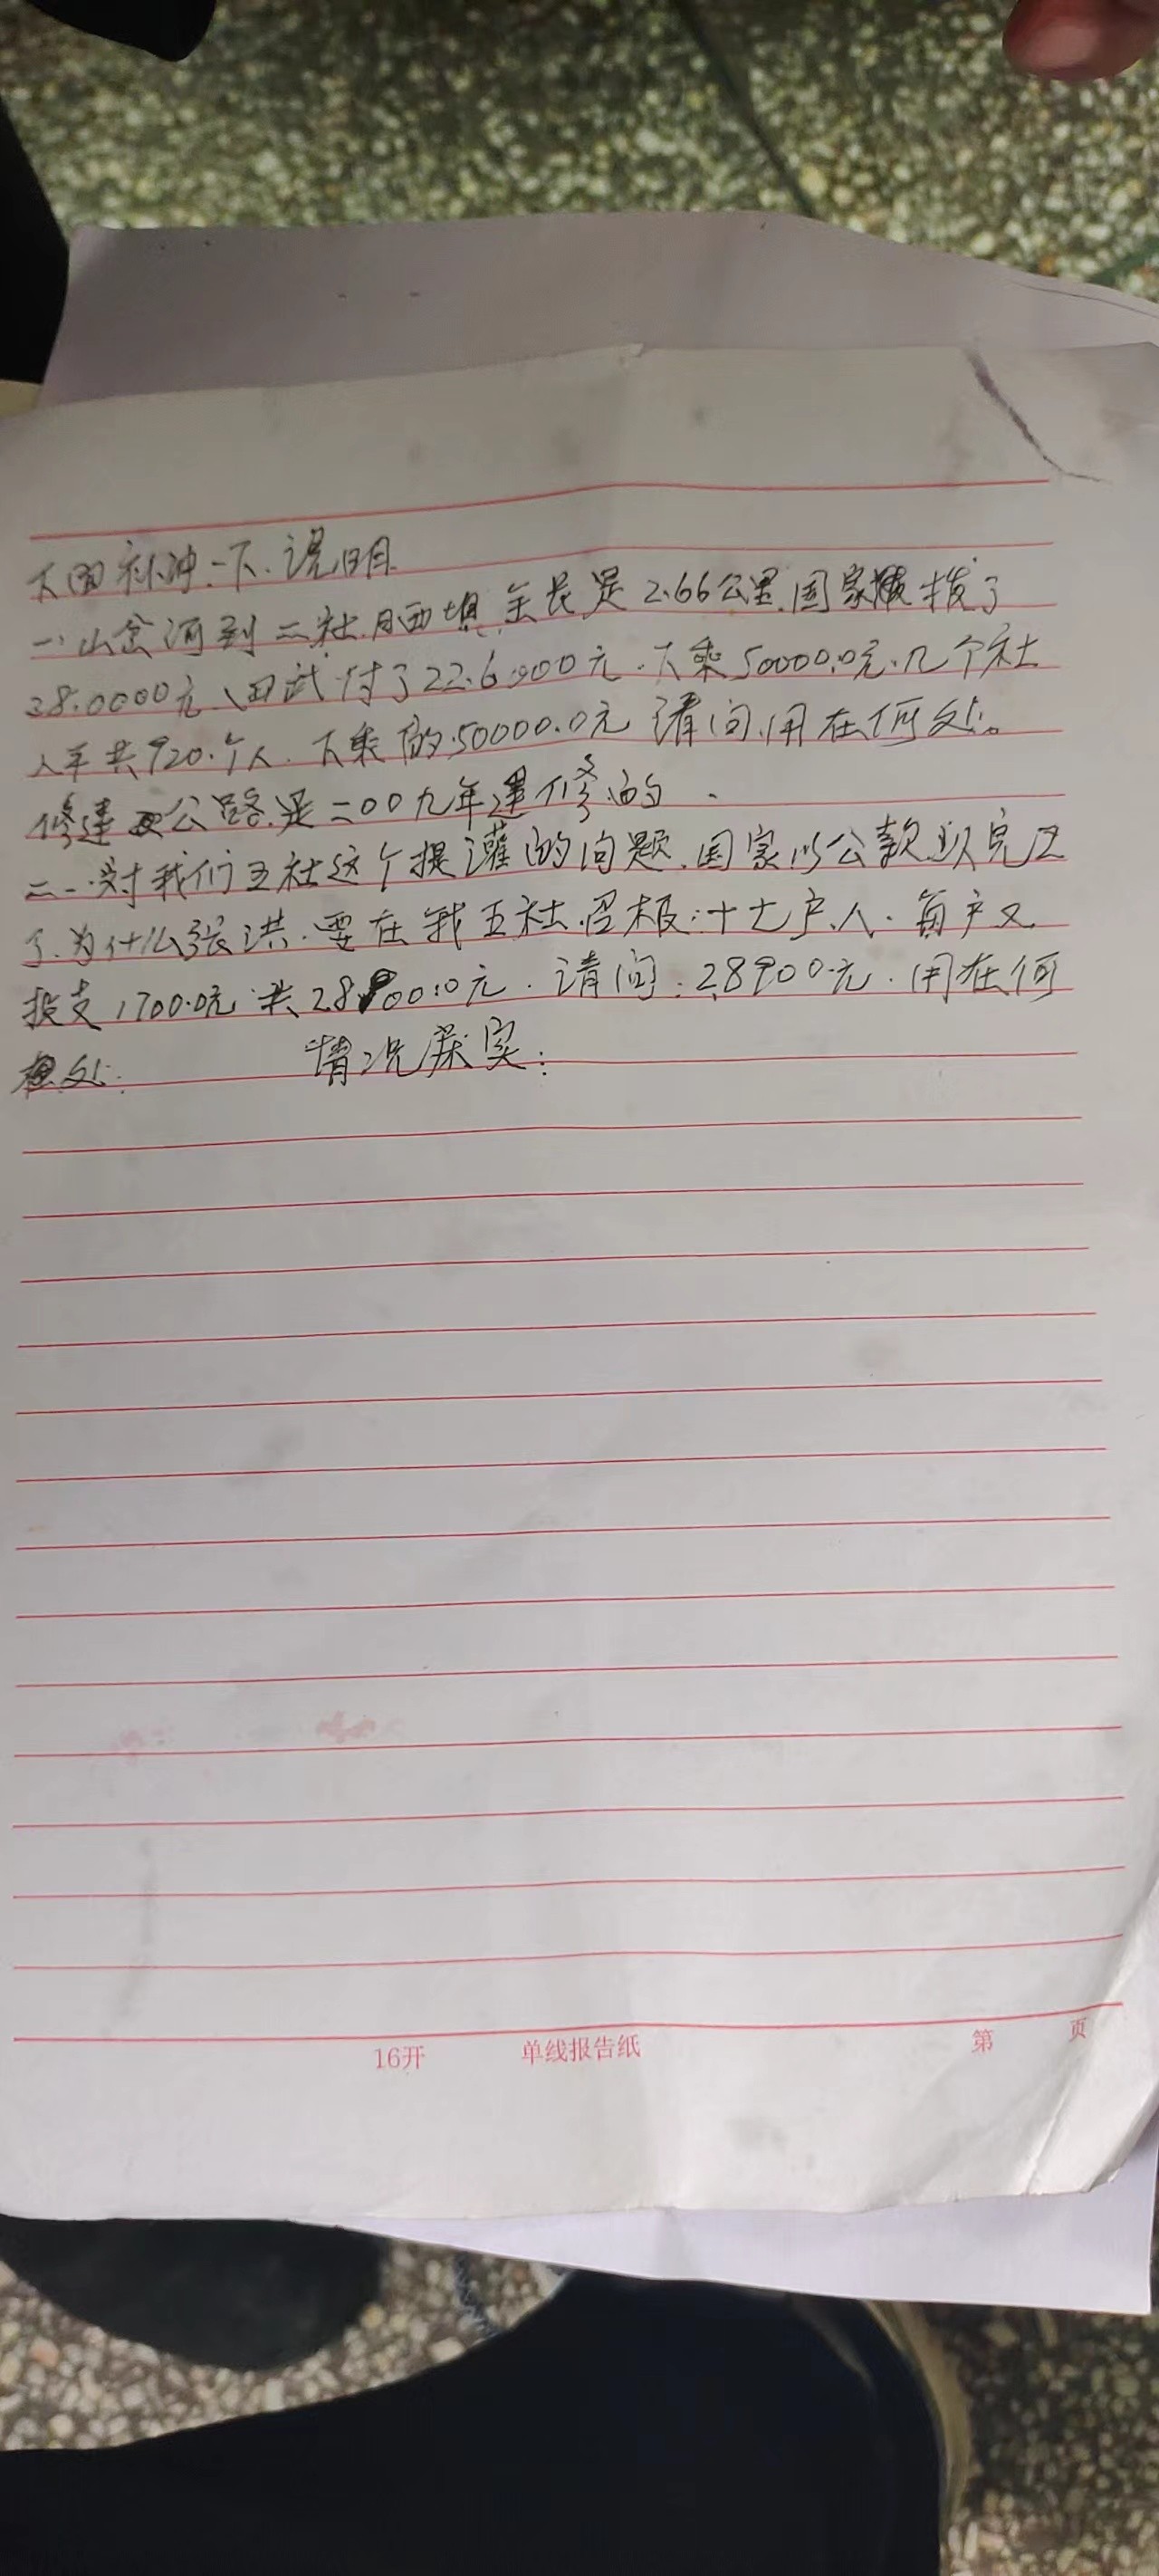 下面补冲一下说明
一.山岔河到二社月西坝全长是2.66公里.国家拨了
28.0000元、田武付了22.6.000元.下乘50000.0元.几个社
人平共920.个人.下乘的50000.0元请问用在何处。
修建公路是二00九年建修的.
二.对我们五社这个提灌的问题.国家以公款以完
了.为什么张洪.要在我五社.召极:十七户人.每户又
投支1700.0元共289000元.请问:28900元.用在何
处. 情况属实:
16开 单线报告纸 第 页